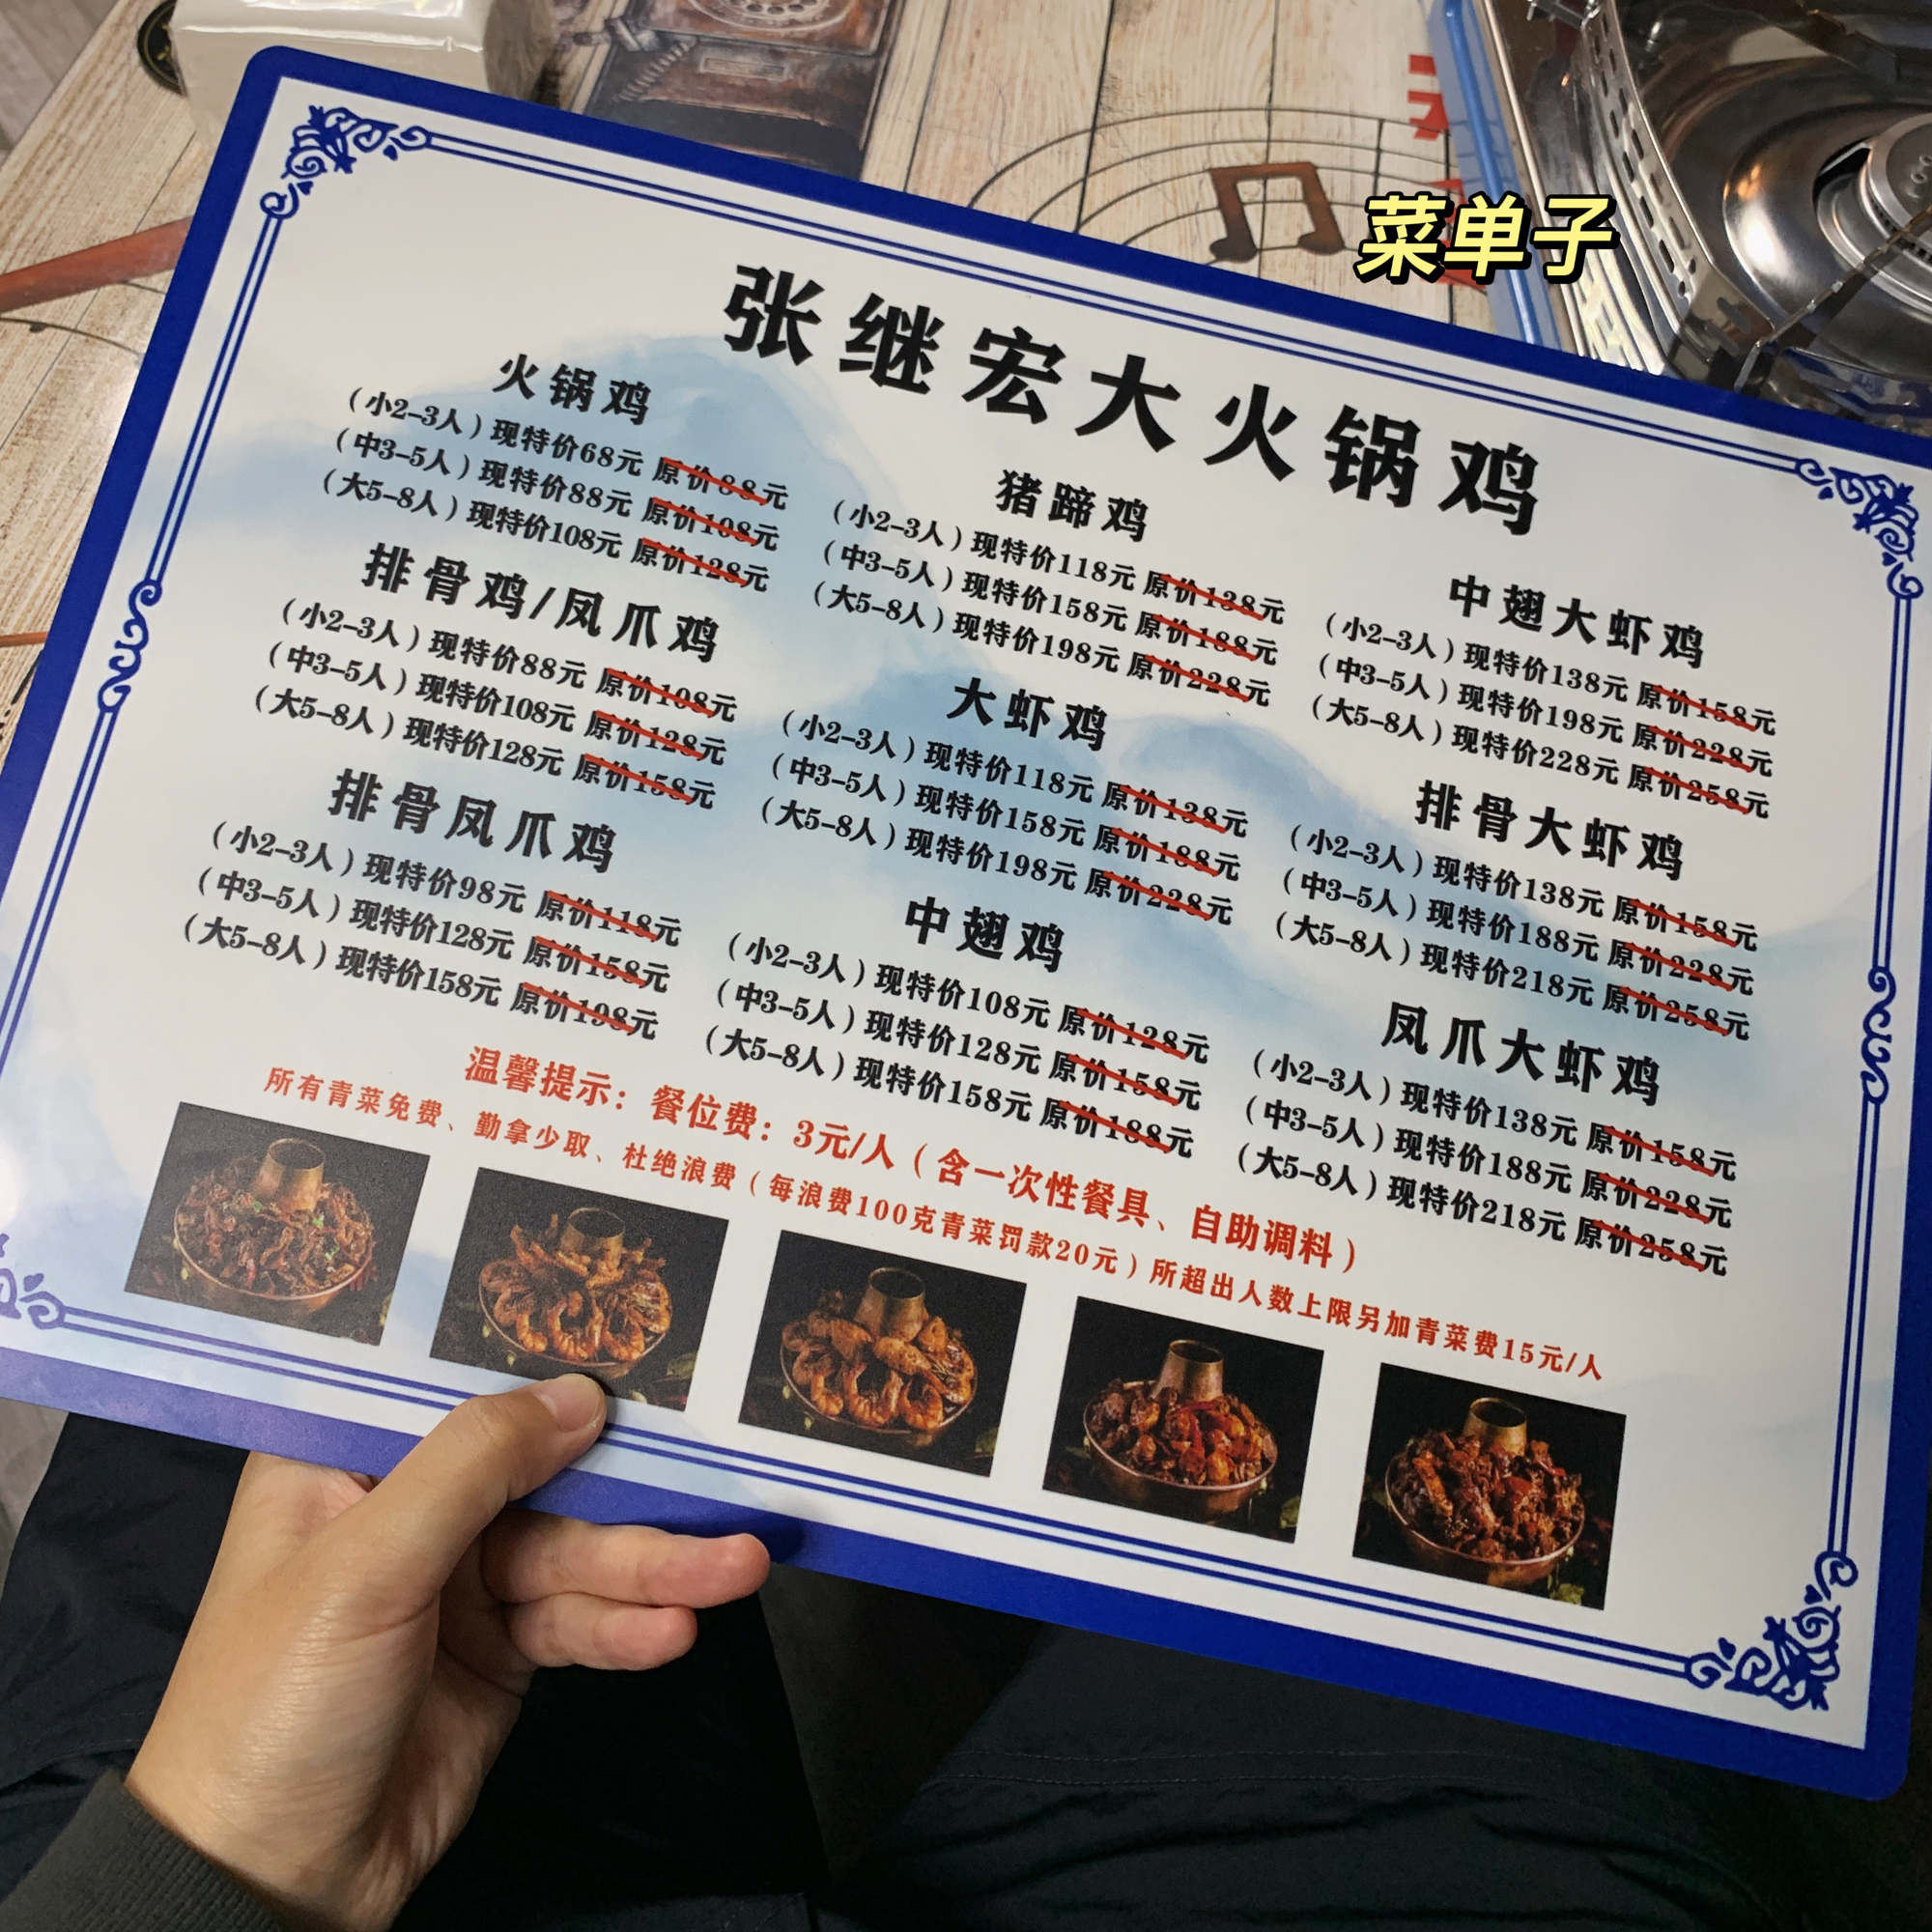 菜单子
张继宏大火锅鸡
火锅鸡
（小2-3人）现特价68元 原价88元
（中3-5人）现特价88元 原价108元
（大5-8人）现特价108元 原价128元
排骨鸡/凤爪鸡
（小2-3人）现特价88元 原价108元
（中3-5人）现特价108元 原价128元
（大5-8人）现特价128元 原价158元
排骨凤爪鸡
（小2-3人）现特价98元 原价118元
（中3-5人）现特价128元 原价158元
（大5-8人）现特价158元 原价198元
猪蹄鸡
（小2-3人）现特价118元 原价138元
（中3-5人）现特价158元 原价188元
（大5-8人）现特价198元 原价228元
大虾鸡
（小2-3人）现特价118元 原价138元
（中3-5人）现特价158元 原价188元
（大5-8人）现特价198元 原价228元
中翅鸡
（小2-3人）现特价108元 原价128元
（中3-5人）现特价128元 原价158元
（大5-8人）现特价158元 原价188元
中翅大虾鸡
（小2-3人）现特价138元 原价158元
（中3-5人）现特价198元 原价228元
（大5-8人）现特价228元 原价258元
排骨大虾鸡
（小2-3人）现特价138元 原价158元
（中3-5人）现特价188元 原价228元
（大5-8人）现特价218元 原价258元
凤爪大虾鸡
（小2-3人）现特价138元 原价158元
（中3-5人）现特价188元 原价228元
（大5-8人）现特价218元 原价258元
温馨提示：餐位费：3元/人（含一次性餐具、自助调料）
所有青菜免费、勤拿少取、杜绝浪费（每浪费100克青菜罚款20元）所超出人数上限另加青菜费15元/人